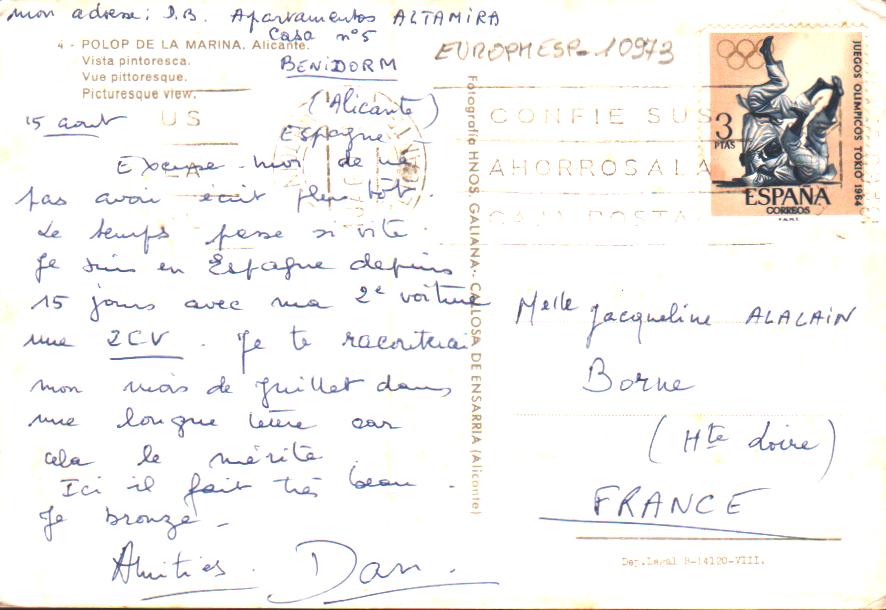 mon adresse: D.B. Apartamentos ALTAMIRA
Casa n°5
BENIDORM
(Alicante)
Espagne
4 - POLOP DE LA MARINA. Alicante.
Vista pintoresca.
Vue pittoresque.
Picturesque view.
EUROPHESP-10973
15 aout
Excuse-moi de ne
pas avoir écrit plus tôt
Le temps passe si vite.
Je suis en Espagne depuis
15 jours avec ma 2e voiture
une 2CV. Je te raconterai
mon mois de Juillet dans
une longue lettre car
cela le mérite
Ici il fait très beau.
Je bronze -
Amitiés. Dan.
Fotografía HNOS. GALIANA.- CALLOSA DE ENSARRIA (Alicante)
US
CONFIE SUS
AHORROS A LA
CAJA POSTA
3
PTAS
ESPAÑA
CORREOS
JUEGOS OLIMPICOS TOKIO 1964
Melle Jacqueline ALALAIN
Borne
(Hte Loire)
FRANCE
Dep. Legal B-14120-VIII.